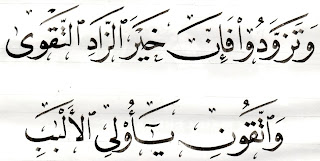 وَتَزَوَّدُوا۟ فَإِنَّ خَيْرَ ٱلزَّادِ ٱلتَّقْوَىٰ
وَٱتَّقُونِ يَـٰٓأُو۟لِى ٱلْأَلْبَـٰبِ